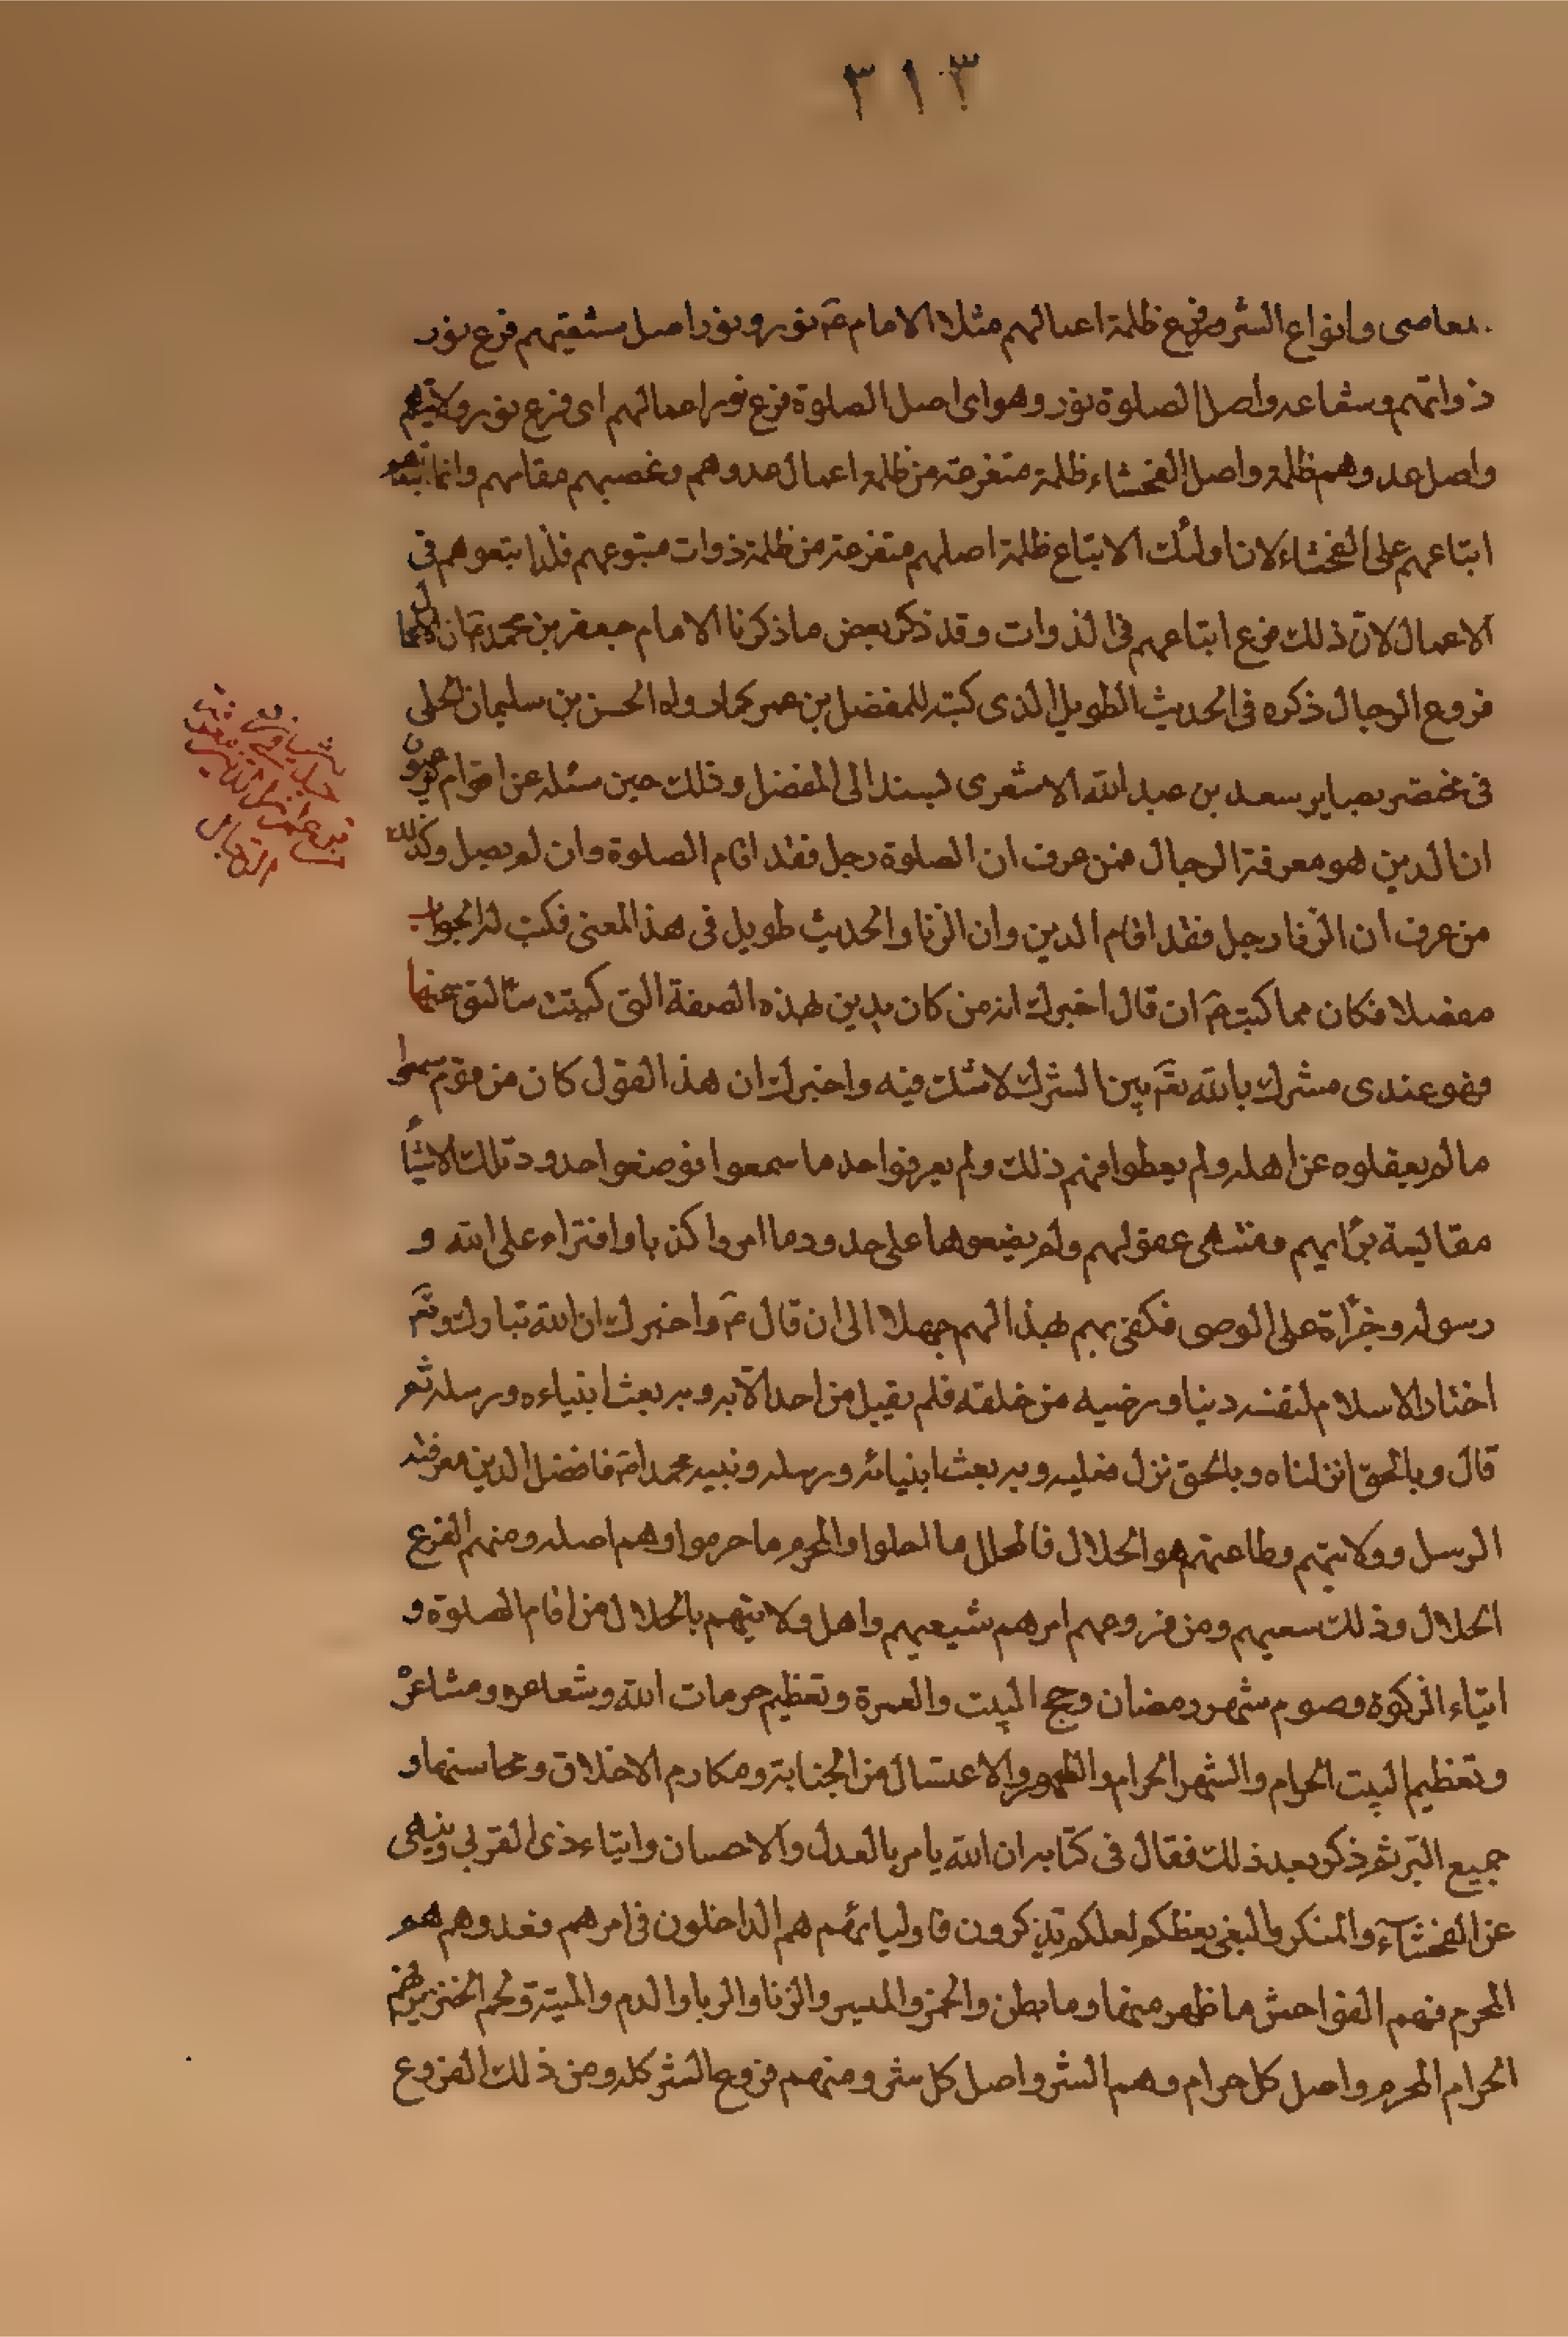 ٣١٣
معاصى وانواع الشر وفرع ظلمة اعمالهم مثلا الامام عَ نور ونور اصل شيعتهم فرع نور
ذواتهم وشعاعه واصل الصلوة نور وهو اى اصل الصلوة فرع نور اعمالهم اى فرع نور ولايتهم
واصل عدوهم ظلمه واصل الفحشاء ظلمة متفرعة من ظلمه اعمال عدوهم وغصبهم مقامهم وانما تبعهم
اتباعهم على الفحشاء لان اولئك الاتباع ظلمة اصلهم متفرعة من ظلمة ذوات متبوعهم فلذا تبعوهم فى
الاعمال لانّ ذلك فرع اتباعهم فى الذوات وقد ذكر بعض ما ذكرنا الامام جعفر بن محمد عَ ان الاعمال
فروع الرجال ذكره فى الحديث الطويل الذى كتبه للمفضل بن عمر كما رواه الحسن بن سليمان الحلى
فى مختصر بصاير سعد بن عبد الله الاشعرى بسنده الى المفضل وذلك حين سئله عن اقوام
ان الدين هو معرفة الرجال فمن عرف ان الصلوة رجل فقد اقام الصلوة وان لم يصل وكذلك
من عرف ان الزنا رجل فقد اقام الدين وان الزنا والحديث طويل فى هذ المعنى فكتب له الجواب
مفصلا فكان مما كتب عَ ان قال اخبرك انه من كان يدين بهذه الصفة التى كتبت تسالنى عنها
فهو عندى مشرك بالله تعَ بين الشرك لا شك فيه واخبرك ان هذا القول كان من قوم سمعوا
ما لم يعقلوه عن اهله ولم يعطوا فهم ذلك ولم يعرفوا حد ما سمعوا فوضعوا حدود تلك الاشيأ
مقايسة برأيهم ومنتهى عقولهم ولم يضعوها على حدود ما امروا كذبا وافتراء على الله و
رسوله وجرأة على الوصى فكفى بهم بهذا لهم جهلا الى ان قال عَ واخبرك ان الله تبارك وتعَ
اختار الاسلام لنفسه دينا ورضيه من خلقه فلم يقبل من احد الّا به وبه بعث انبياءه ورسله ثم
قال وبالحق انزلناه وبالحق نزل فعليه وبه بعث انبيائه ورسله ونبيه محمدا صَ فافضل الدين معرفته
الرسل وولايتهم وطاعتهم هو الحلال فالمحلل ما احلوا والمحرم ما حرموا وهم اصله ومنهم الفرع
الحلال وذلك سعيهم ومن فروعهم امرهم شيعتهم واهل ولايتهم بالحلال من اقام الصلوة و
ايتاء الزكوة وصوم شهر رمضان وحج البيت والعمرة وتعظيم حرمات الله وشعائره ومشاعره
وتعظيم البيت الحرام والشهر الحرام والطهور والاغتسال من الجنابة ومكارم الاخلاق ومحاسنها و
جميع البّر ثم ذكر بعد ذلك فقال فى كتابه ان الله يامر بالعدل والاحسان وايتاء ذى القربى وينهى
عن الفحشاء والمنكر والبغى يعظكم لعلكم تذكرون فاوليائهم هم الداخلون فى امرهم فعدوهم هم
المحرم فهم الفواحش ما ظهر منها وما بطن والخمر والميسر والزنا والربا والدم والميتة ولحم الخنزير فهم
الحرام المحرم واصل كل حرام وهم الشر واصل كل شر ومنهم فروع الشر كله ومن ذلك الفروع